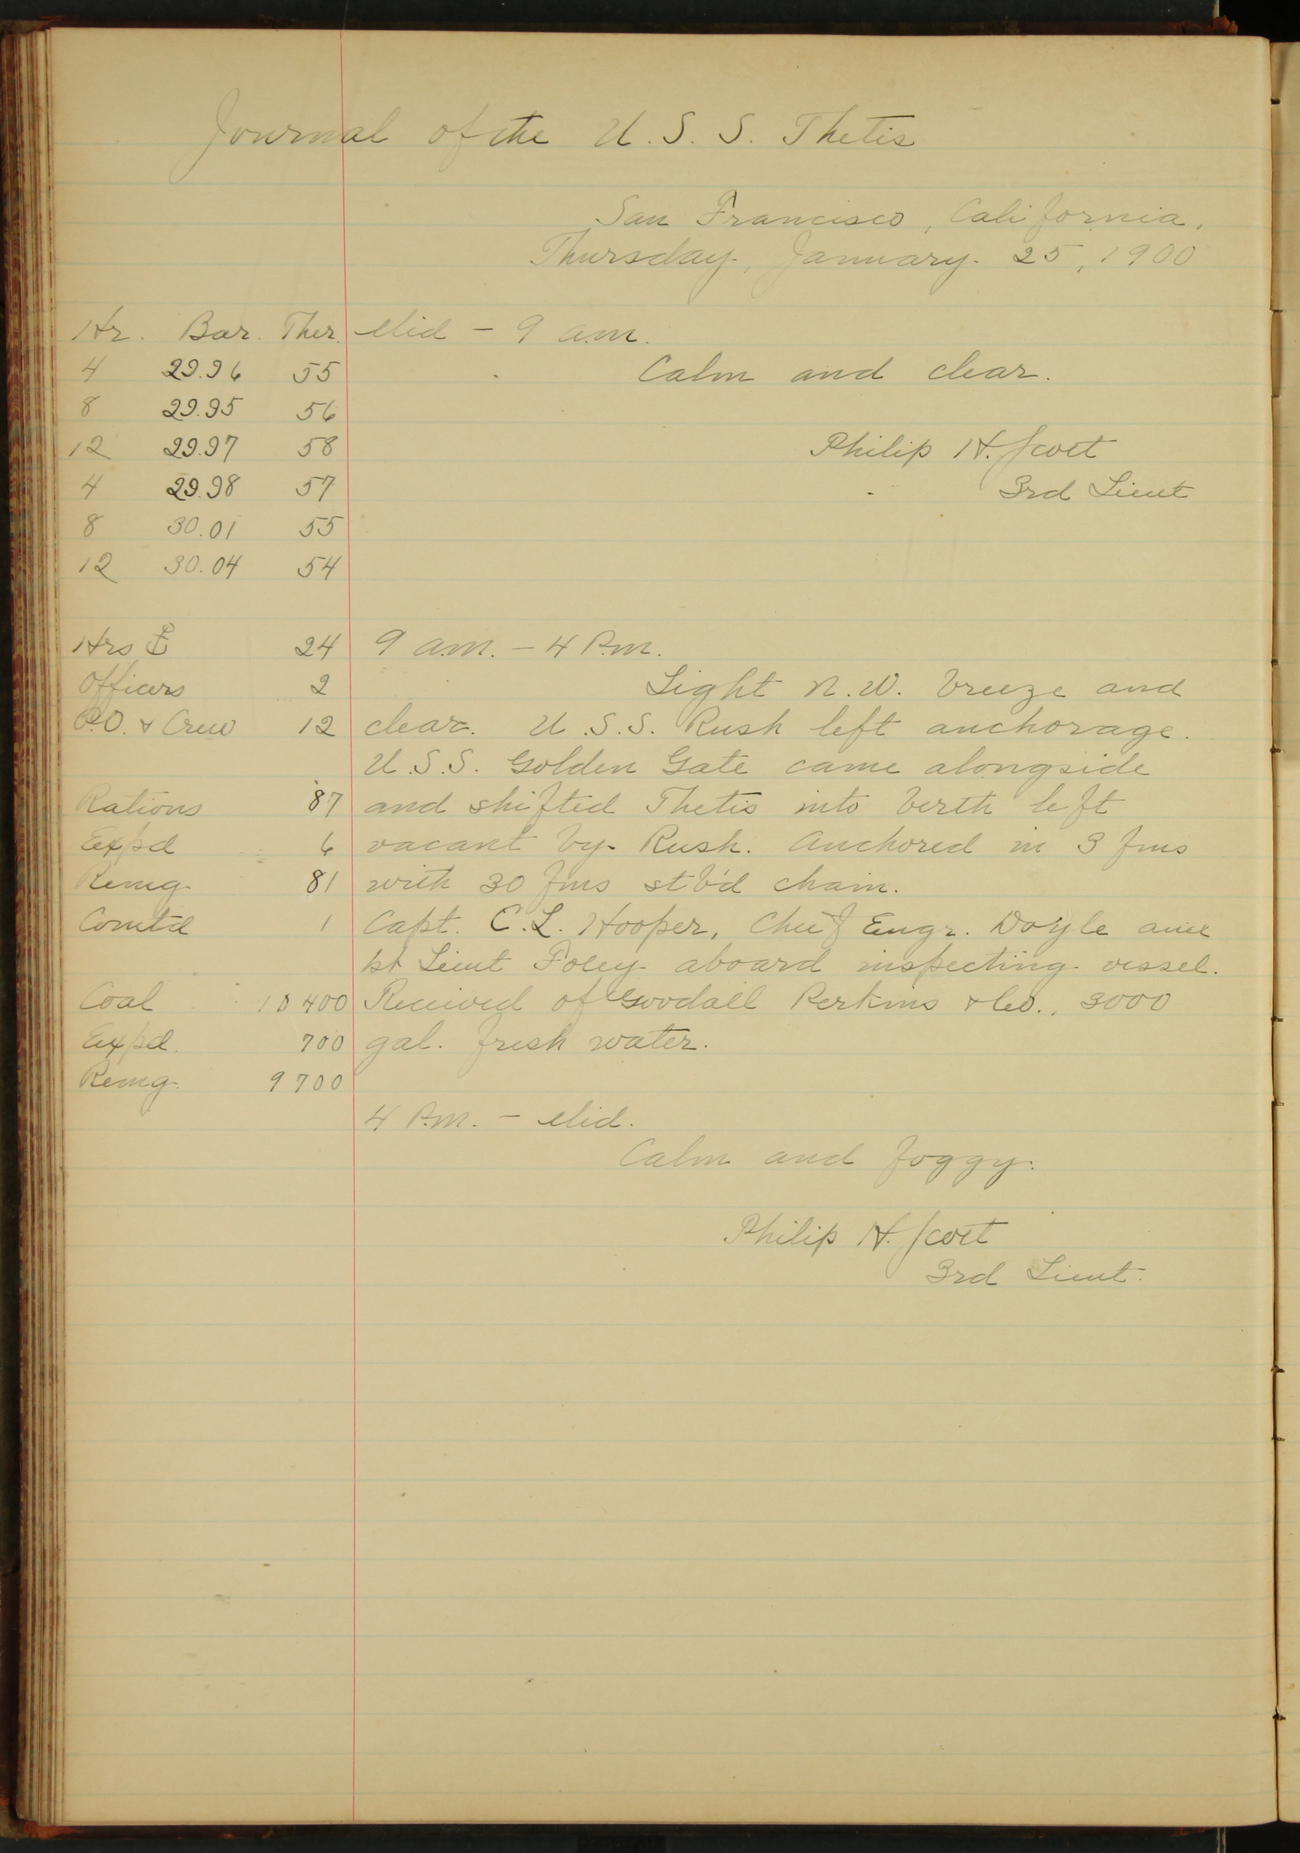 Journal of the U.S.S. Thetis
San Francisco, California,
Thursday, January 25, 1900
Hr. Bar. Ther. Mid – 9 a.m.
4 29.96 55 Calm and clear.
8 29.95 56
12 29.97 58 Philip H. Scott
4 29.98 57 3rd Lieut
8 30.01 55
12 30.04 54
Hrs ⚓ 24 9 a.m. – 4 P.m.
Officers 2 Light N.W. breeze and
P.O. & Crew 12 clear. U.S.S. Rush left anchorage.
U.S.S. Golden Gate came alongside
Rations 87 and shifted Thetis into berth left
Exp'd 6 vacant by Rush. Anchored in 3 fms
Remg. 81 with 30 fms stb'd chain.
Comt'd 1 Capt. C.L. Hooper, Chief Engr. Doyle and
1st Lieut Foley aboard inspecting vessel.
Coal 10400 Received of Goodall Perkins & Co., 3000
Exp'd. 700 gal. fresh water.
Remg. 9700
4 P.m. – Mid.
Calm and foggy.
Philip H. Scott
3rd Lieut.